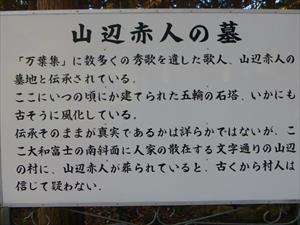 山辺赤人の墓
「万葉集」に数多くの秀歌を遺した歌人、山辺赤人の
墓地と伝承されている。
ここにいつの頃にか建てられた五輪の石塔、いかにも
古そうに風化している。
伝承そのままが真実であるかは詳らかではないが、こ
こ大和富士の南斜面に人家の散在する文字通りの山辺
の村に、山辺赤人が葬られていると、古くから村人は
信じて疑わない。